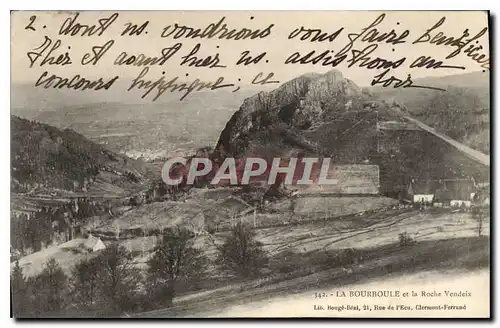 2. dont ns. voudrions vous faire bénéficier
hier Avant hier ns. assistions au
concours hippique, ce soir
CPARAMA
542. - LA BOURBOULE et la Roche Vendeix
Lib. Bougé-Béal, 21, Rue de l'Ecu, Clermont-Ferrand